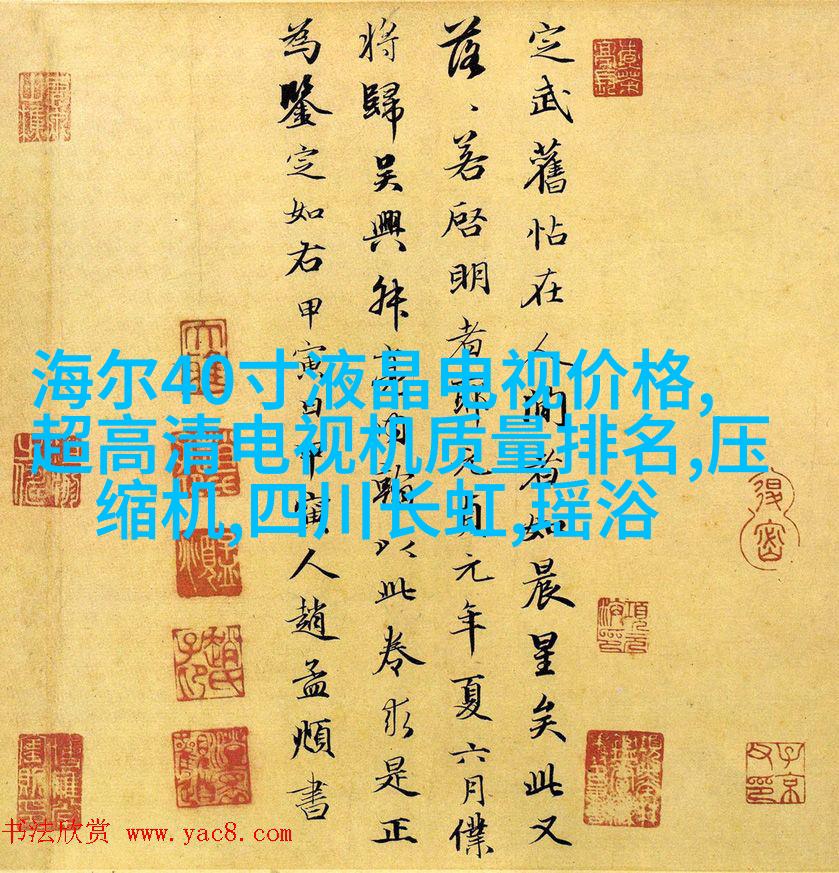 定武舊帖在人間者如晨星矣此又
落、若啓明者耶元貞元年夏六月僕
将歸吴興亮以此卷求是正
為鑒定如右甲寅日甲寅人趙孟頫書
海尔40寸液晶电视价格,
超高清电视机质量排名,压
缩机,四川长虹,瑶浴
书法欣赏 www.yac8.com